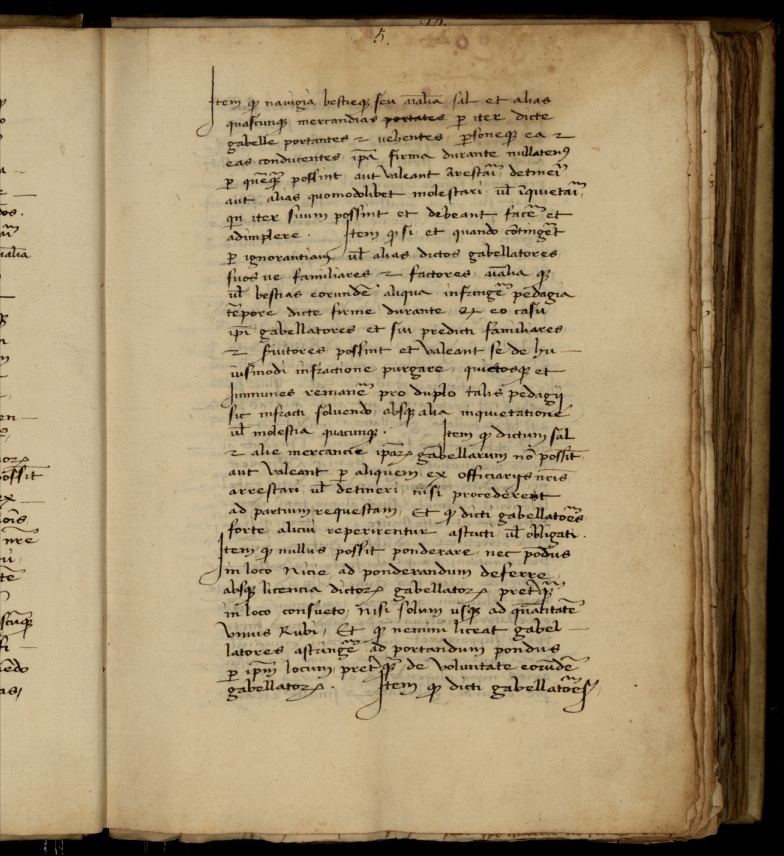 5.
Item qp nauigia bestieqȝ seu aīalia sal et alias
quascunqȝ mercandias portates p iter dicte
gabelle portantes ⁊ uehentes, psoneqȝ ea ⁊
eas conducentes ipā firma durante nullatenꝰ
p possint aut valeant arestari detineri
aut alias quomodolibet molestari ul̄ īquietari
qn̄ iter suum possint et debeant facē et
adimplere. Item qp si et quando cōtingēt
p ignorantiam ul̄ alias dictos gabellatores
suos ue familiares ⁊ factores aīalia qȝ
ul̄ bestias eorundē aliqua infringē pedagia
tēpore dicte firme durante, eo casu
ipī gabellatores et siu predicti familiares
⁊ possint et valeant se de hu
iusmodi infractione purgare, quietosqȝ et
Immunes remanē pro duplo talis pedagij
sic infracti soluendo, absqȝ alia inquietatione
ul̄ molestia quacunqȝ. Item qp dictum sal
⁊ alie mercancie ipaꝝ gabellarum nō possīt
aut valeant p aliquem ex officiarijs nr̄is
arrestari ul̄ detineri, nisi procederent
ad partium requestam, Et qp dicti gabellatōēs
forte alicui reperirentur astricti ul̄ obligati.
Item qp nullus possit ponderare, nec podus
in loco Nicie ad ponderandum deferre
absqȝ licencia dictoꝝ gabellatoꝝ
in loco consueto, nisi solum usqȝ ad quātitatē
vnius Rubi, Et qp nemini liceat gabel
latores astringē ad portandum pondus
p ipm̄ locum, de voluntate eorudē
gabellatoꝝ. Item qp dicti gabellatōēs